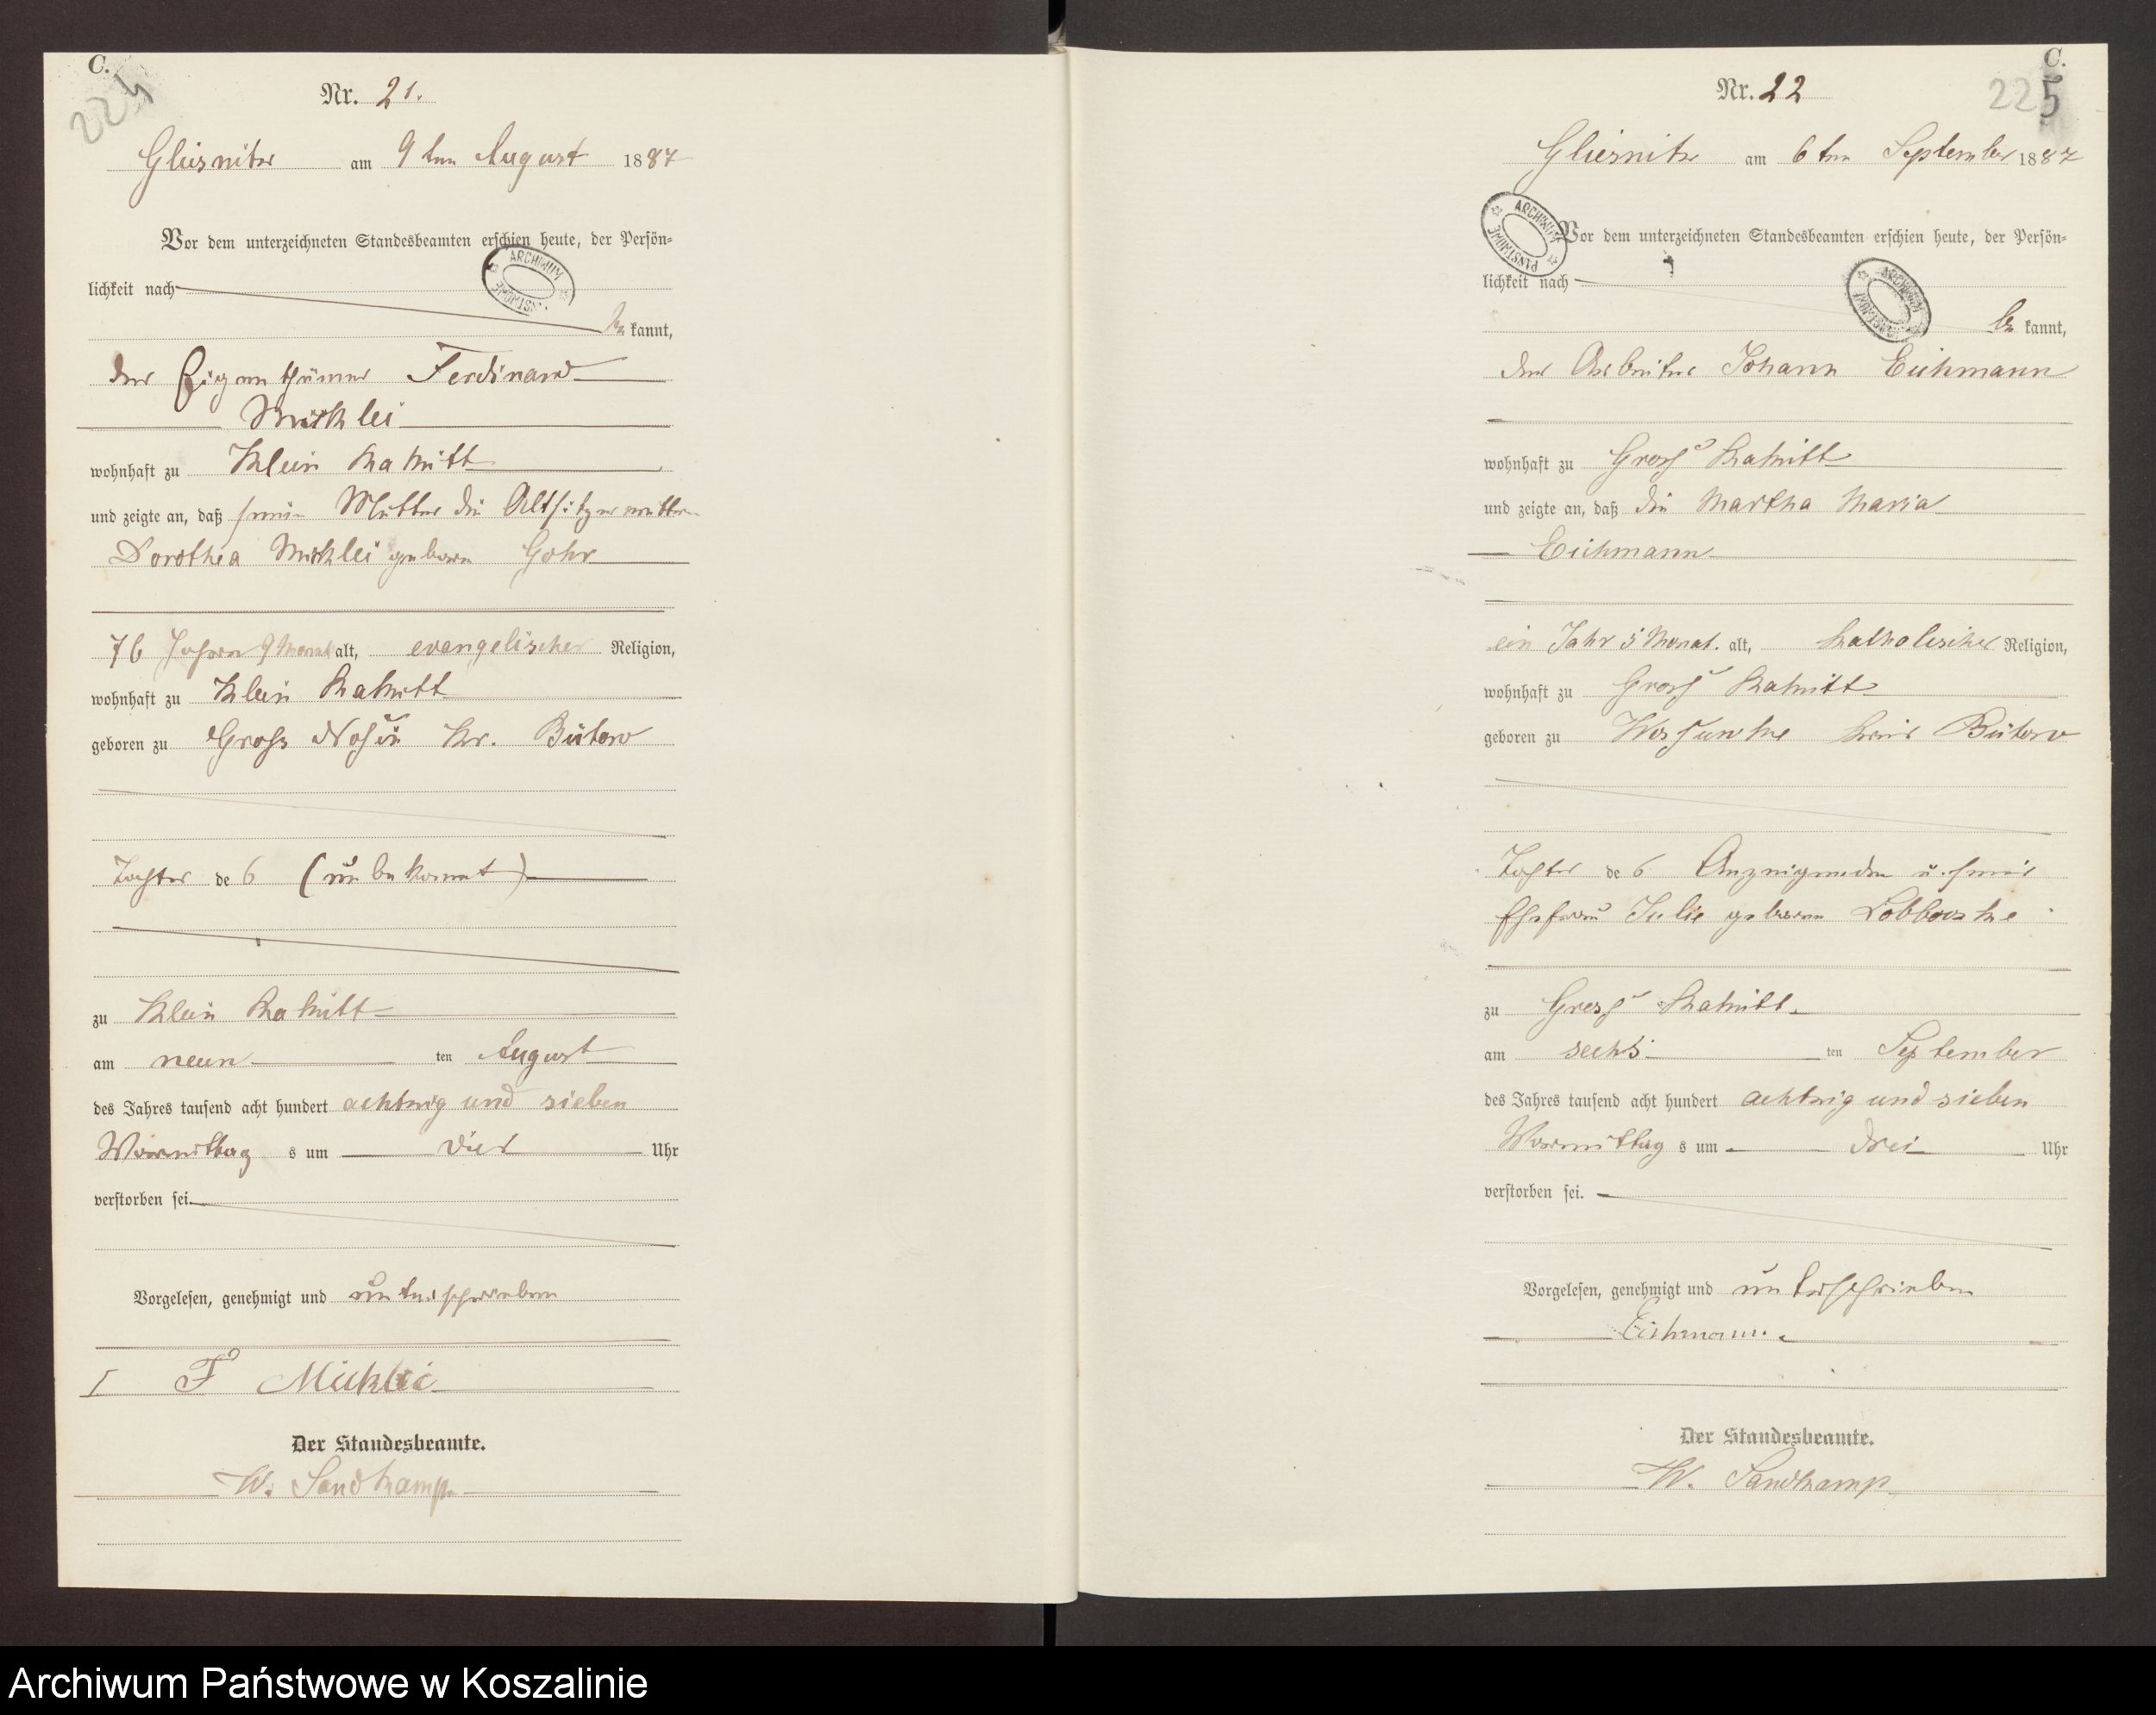 C.
224
Nr. 21.
Gliesnitz am 9ten August 1887
Vor dem unterzeichneten Standesbeamten erschien heute, der Persön-
lichkeit nach
be kannt,
der Eigenthümer Ferdinand
wohnhaft zu Klein Rakitt
und zeigte an, daß seine Mutter die Altsitzerwittwe
Dorothea geboren Gohr
76 Jahre 9 Monat alt, evangelischer Religion,
wohnhaft zu Klein Rakitt
geboren zu Gross Nossin Kr. Bütow
Tochter de 6 (unbekannt)
zu Klein Rakitt
am neun ten August
des Jahres tausend acht hundert achtzig und sieben
Vormittag s um vier Uhr
verstorben sei.
Vorgelesen, genehmigt und unterschrieben
F
Der Standesbeamte.
W. Sandkamp
C.
225
Nr. 22
Gliesnitz am 6ten September 1887
ARCHIWUM PAŃSTWOWE
Vor dem unterzeichneten Standesbeamten erschien heute, der Persön-
lichkeit nach
be kannt,
der Arbeiter Johann Eichmann
wohnhaft zu Gross Rakitt
und zeigte an, daß die Martha Maria
Eichmann
ein Jahr 5 Monat. alt, katholischer Religion,
wohnhaft zu Gross Rakitt
geboren zu Kreis Bütow
Tochter de 6 Anzeigenden u. seine
Ehefrau Julie geboren
zu Gross Rakitt
am sechs ten September
des Jahres tausend acht hundert achtzig und sieben
Vormittag s um drei Uhr
verstorben sei.
Vorgelesen, genehmigt und unterschrieben
Eichmann.
Der Standesbeamte.
W. Sandkamp
Archiwum Państwowe w Koszalinie